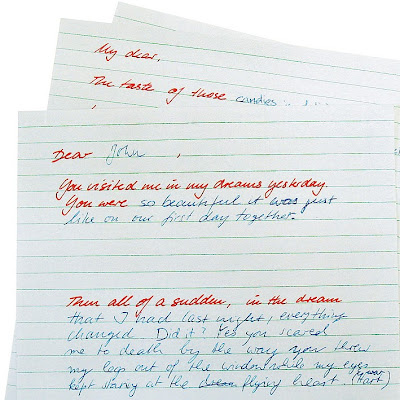 My dear,
The taste of those candies
Dear John,
You visited me in my dreams yesterday.
You were so beautiful it was just
like on our first day together.
Then all of a sudden, in the dream
that I had last night, everything
changed. Did it? Yes you scared
me to death by the way you threw
my legs out of the window while my eyes
kept staring at the flying heart. (Hart)